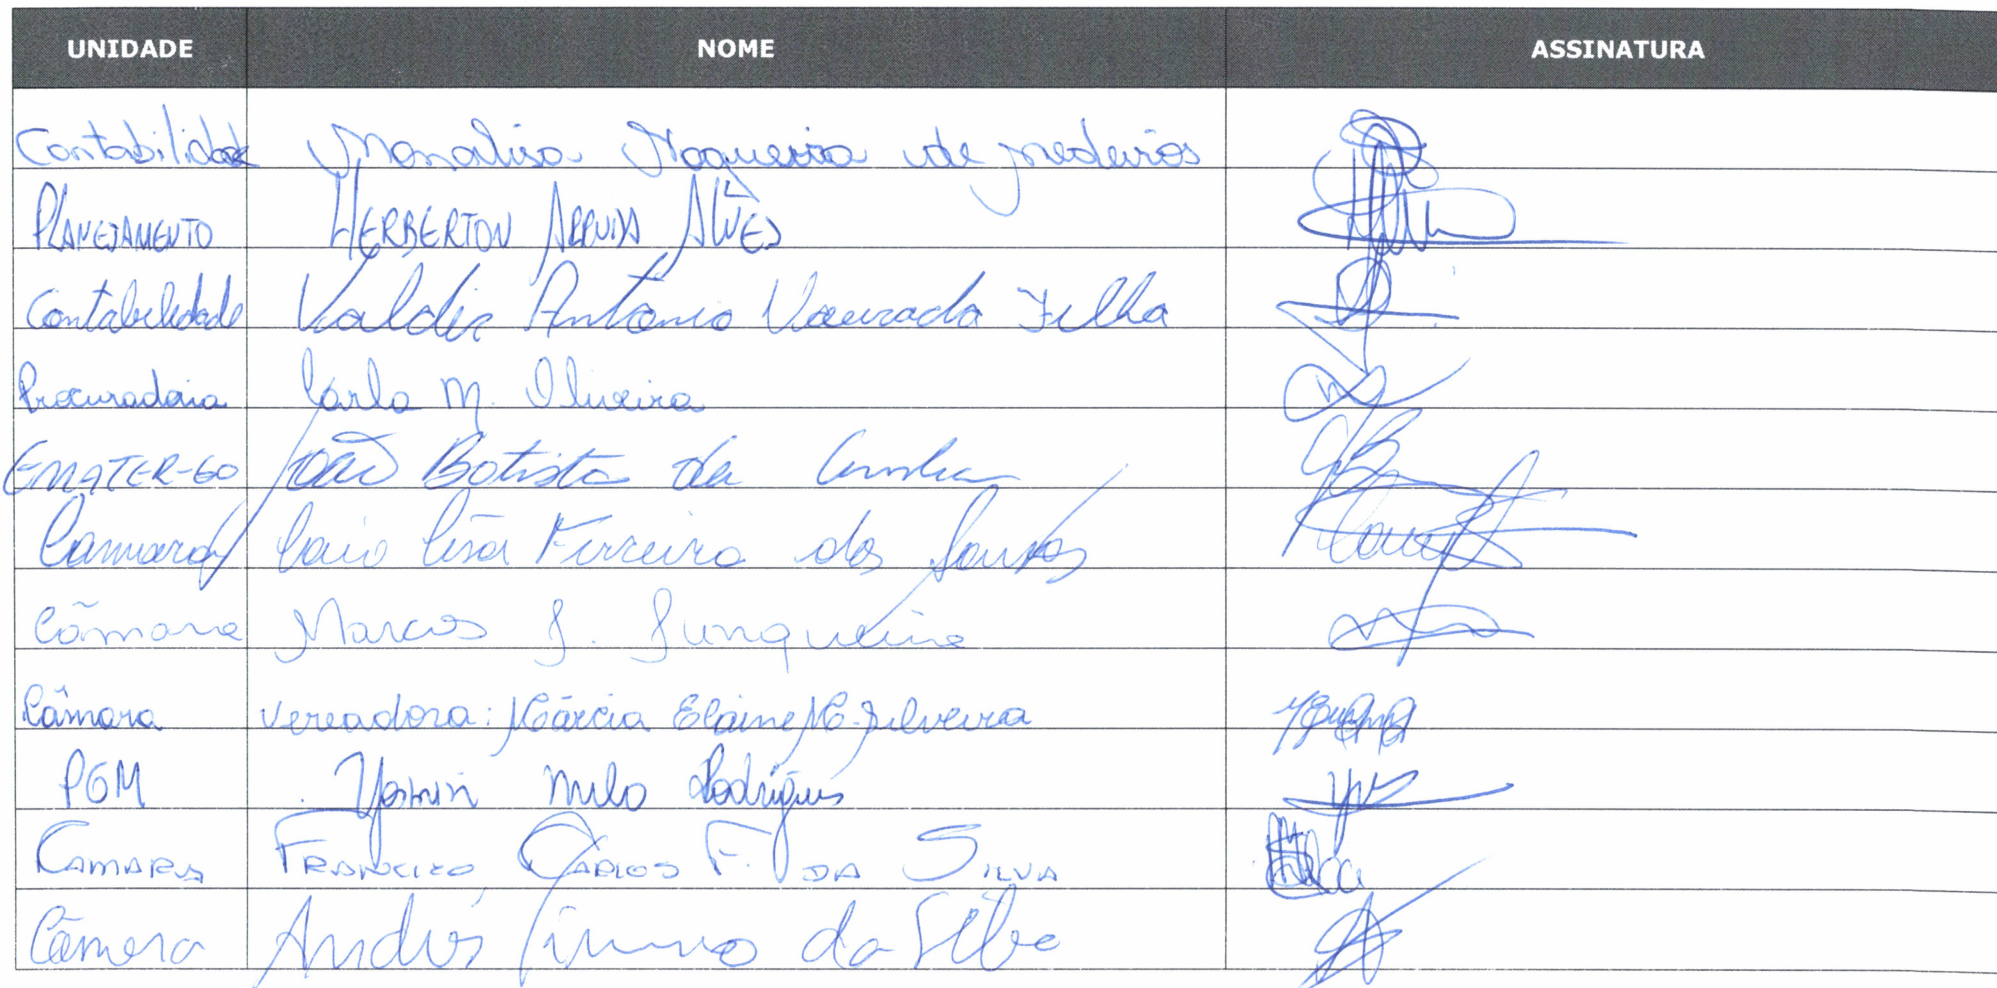 UNIDADE NOME ASSINATURA
Contabilidade Monalisa Nogueira de medeiros
PLANEJAMENTO HERBERTON ARRUDA ALVES
Contabilidade Valdir Antonio Filho
Procuradoria Carla M. Oliveira
EMATER-GO João Batista da Cunha
Camara Caio César Ferreira dos Santos
Câmara Marcos J. Junqueira
Câmara Vereadora: Márcia Elaine M. Silveira
PGM Yasmin Melo Rodrigues
CAMARA FRANCISCO CARLOS F. DA SILVA
Câmera da Silva